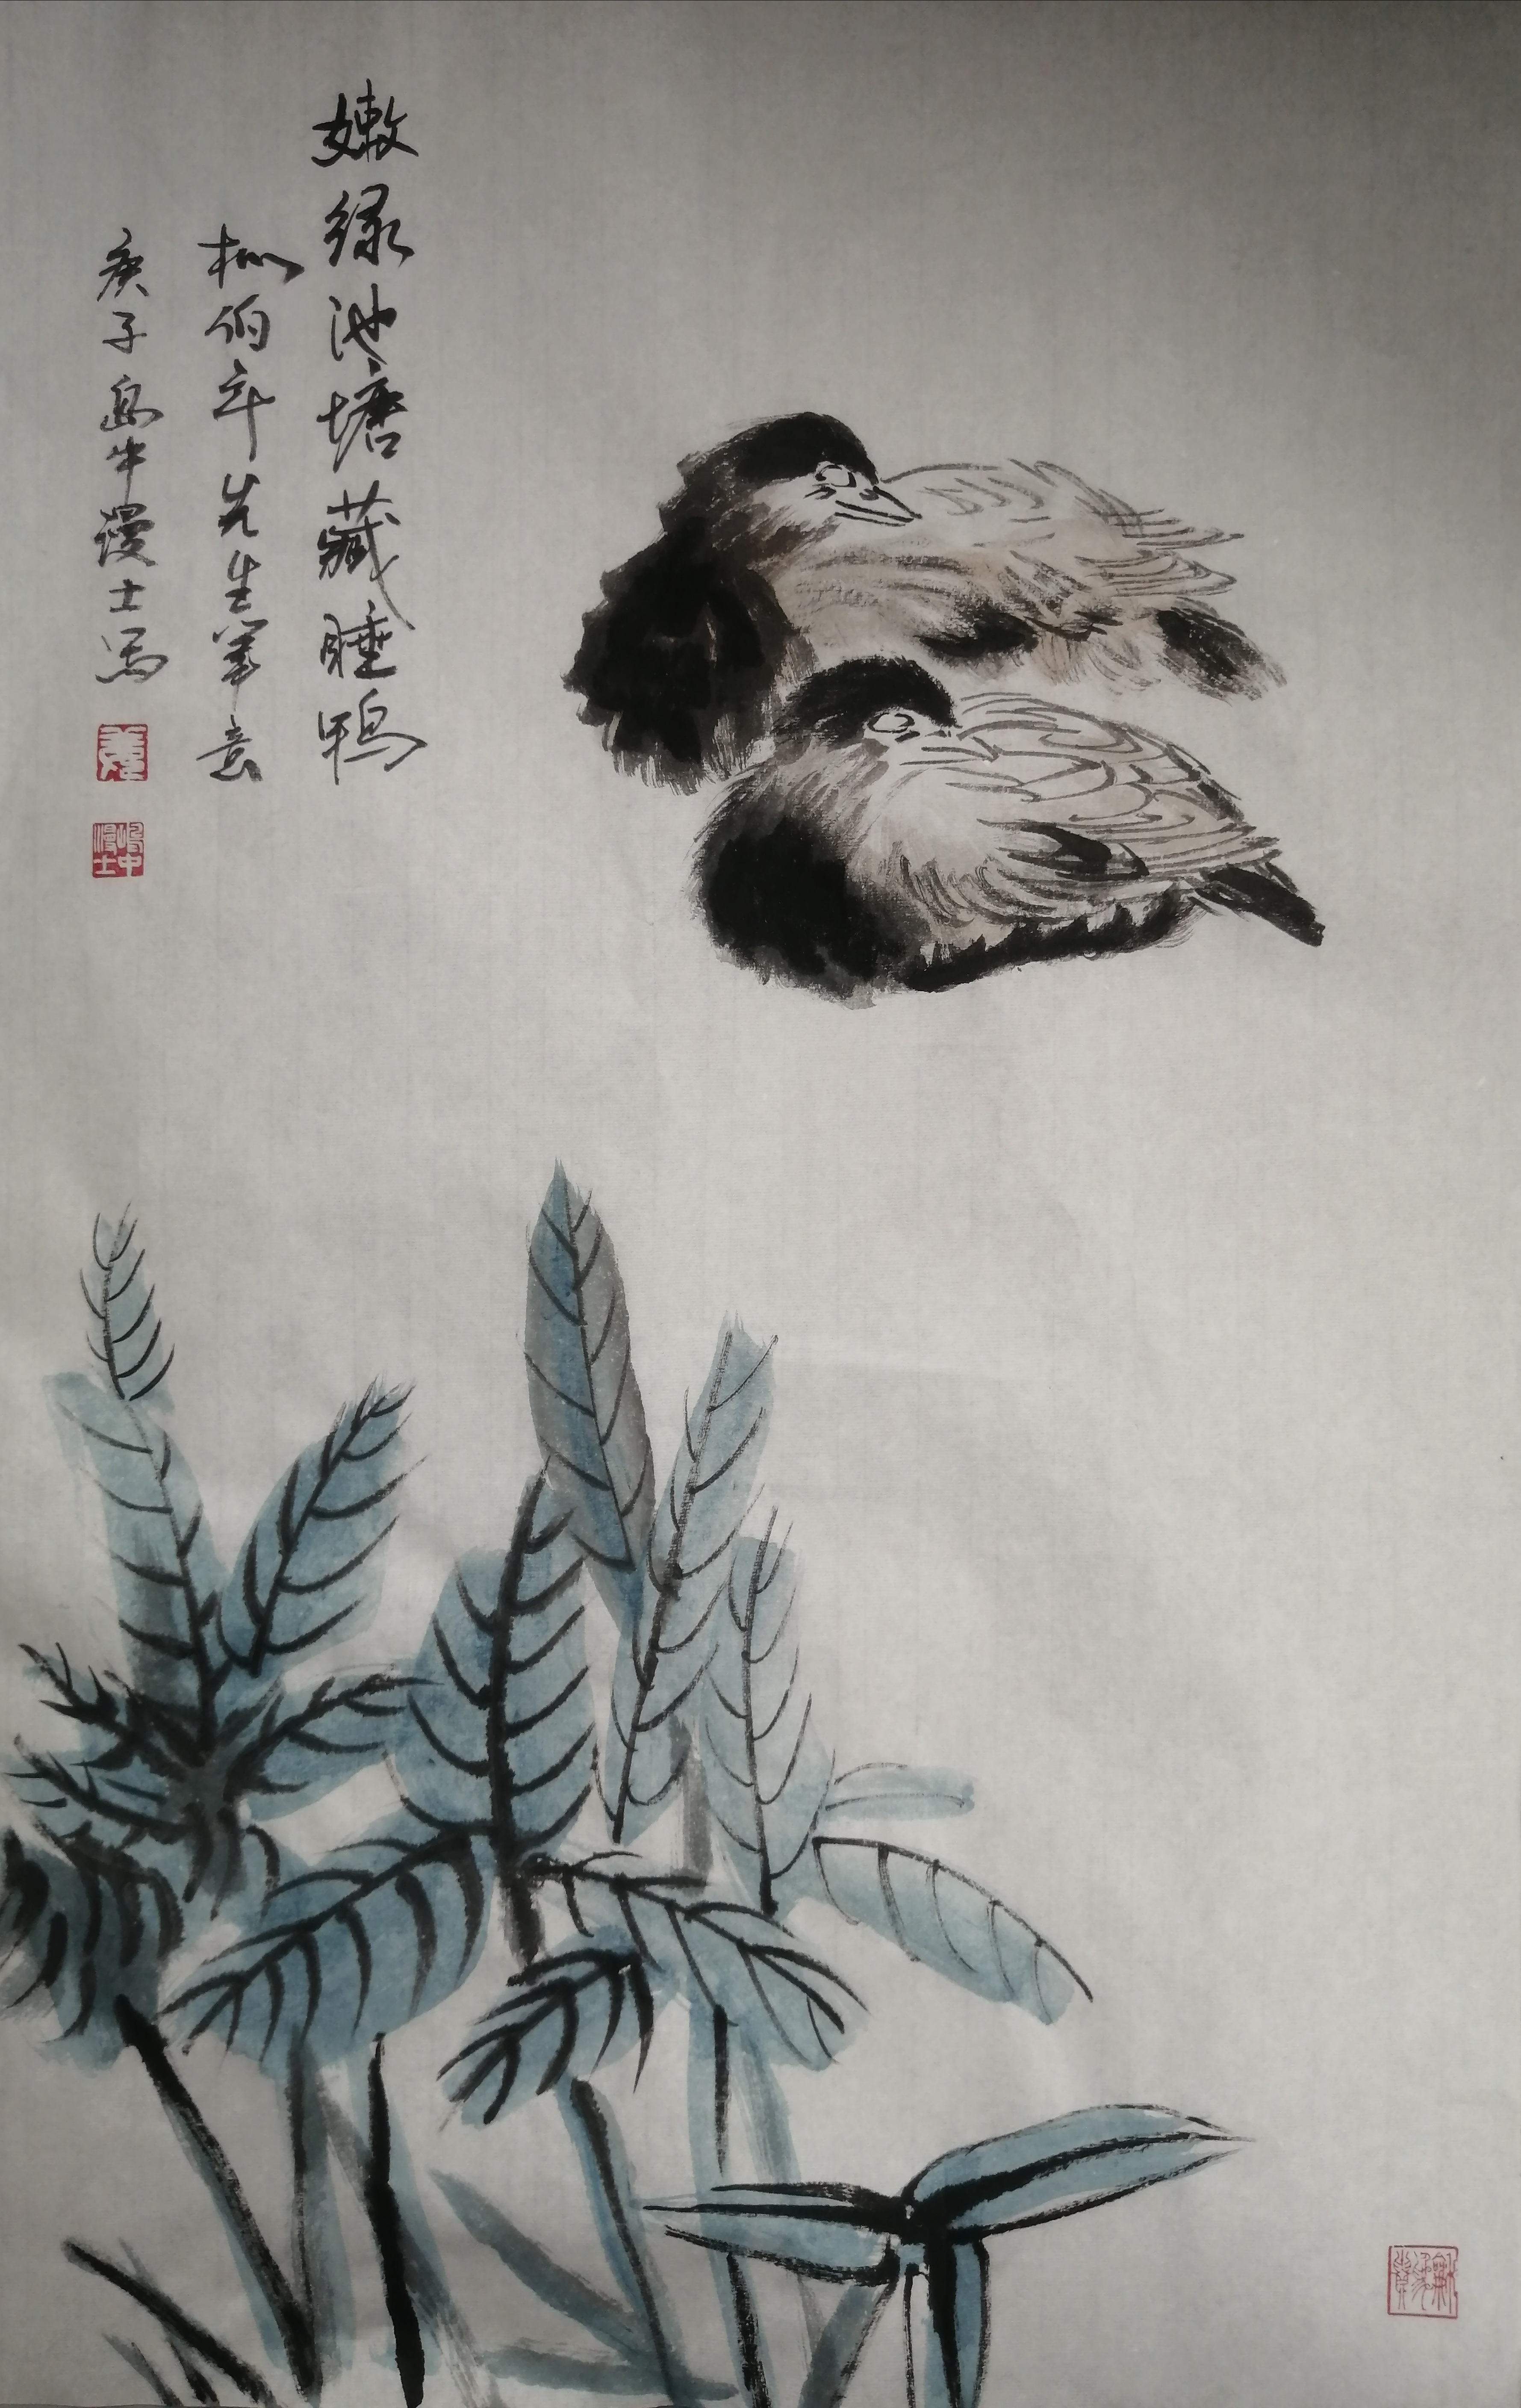 嫩绿池塘藏睡鸭
拟伯年先生筆意
庚子岛中漫士写
嶋中漫士